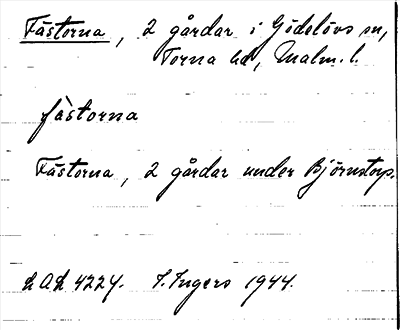 Fästorna, 2 gårdar i Gödelövs sn,
Torna hd, Malm. l.
fästorna
Fästorna, 2 gårdar under Björnstorp.
LAL 4224. I. Ingers 1944.